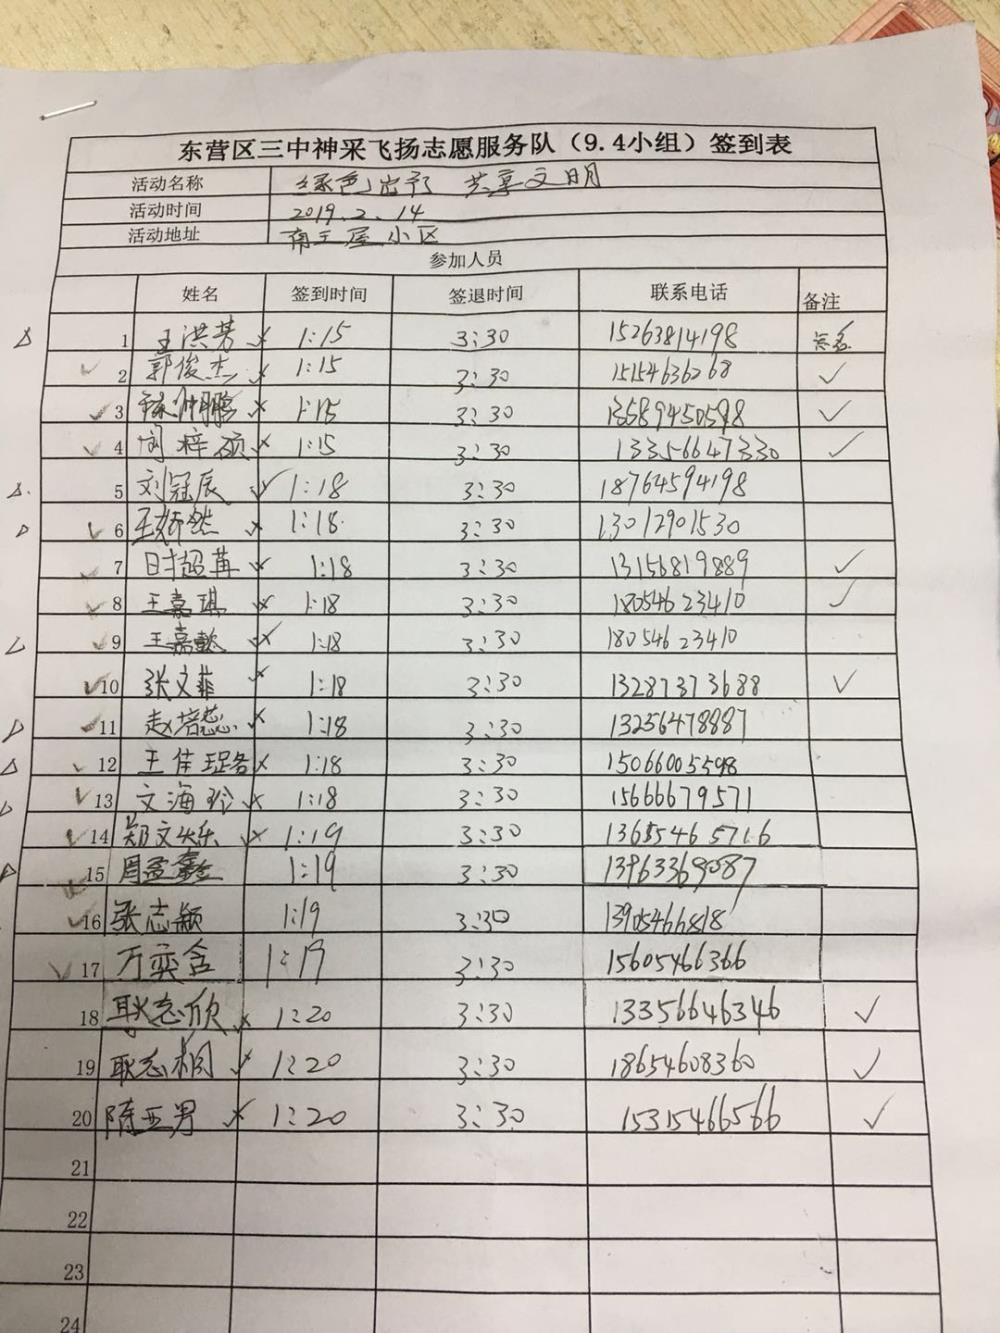 东营区三中神采飞扬志愿服务队（9.4小组）签到表
活动名称 绿色出行 共享文明
活动时间 2019.2.14
活动地址 南王屋小区
参加人员
姓名 签到时间 签退时间 联系电话 备注
1 王洪芳 1:15 3:30 15263814198 点名
2 郭俊杰 1:15 3:30 15154636268 ✓
3 1:15 3:30 13589450598 ✓
4 周梓硕 1:15 3:30 13356647330 ✓
5 刘冠辰 1:18 3:30 18764594198
6 1:18 3:30 13012901530
7 时超苒 1:18 3:30 13156819889 ✓
8 王嘉琪 1:18 3:30 18054623410 ✓
9 王嘉懿 1:18 3:30 18054623410
10 张文菲 1:18 3:30 13287373688 ✓
11 赵培蕊 1:18 3:30 13256478887
12 王佳瑶 1:18 3:30 15066005598
13 文海玲 1:18 3:30 15666679571
14 郑文乐 1:19 3:30 13655465716
15 周孟鑫 1:19 3:30 13963369087
16 张志颖 1:19 3:30 13905466818
17 万奕含 1:19 3:30 15605466366
18 耿志欣 1:20 3:30 13356646346 ✓
19 耿志桐 1:20 3:30 18654608360 ✓
20 隋亚男 1:20 3:30 15315466566 ✓
21
22
23
24